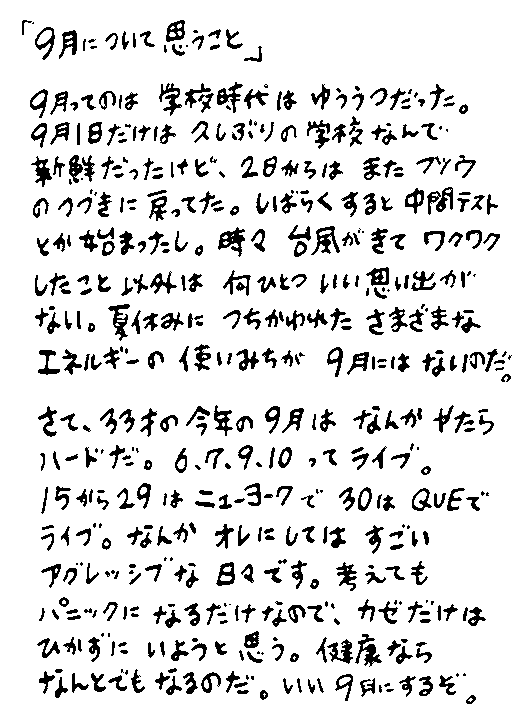 「9月について思うこと」
9月ってのは 学校時代は ゆううつだった。
9月1日だけは 久しぶりの学校なんで
新鮮だったけど、2日からは またフツウ
のつづきに戻ってた。しばらくすると中間テスト
とか始まったし。時々 台風がきて ワクワク
したこと以外は 何ひとつ いい思い出が
ない。夏休みに つちかわれた さまざまな
エネルギーの 使いみちが 9月には ないのだ。
さて、33才の今年の9月は なんか やたら
ハードだ。6.7.9.10 って ライブ。
15から29は ニューヨークで 30は QUEで
ライブ。なんか オレにしては すごい
アグレッシブな 日々です。考えても
パニックに なるだけなので、カゼだけは
ひかずに いようと 思う。健康なら
なんとでも なるのだ。いい 9月にするぞ。